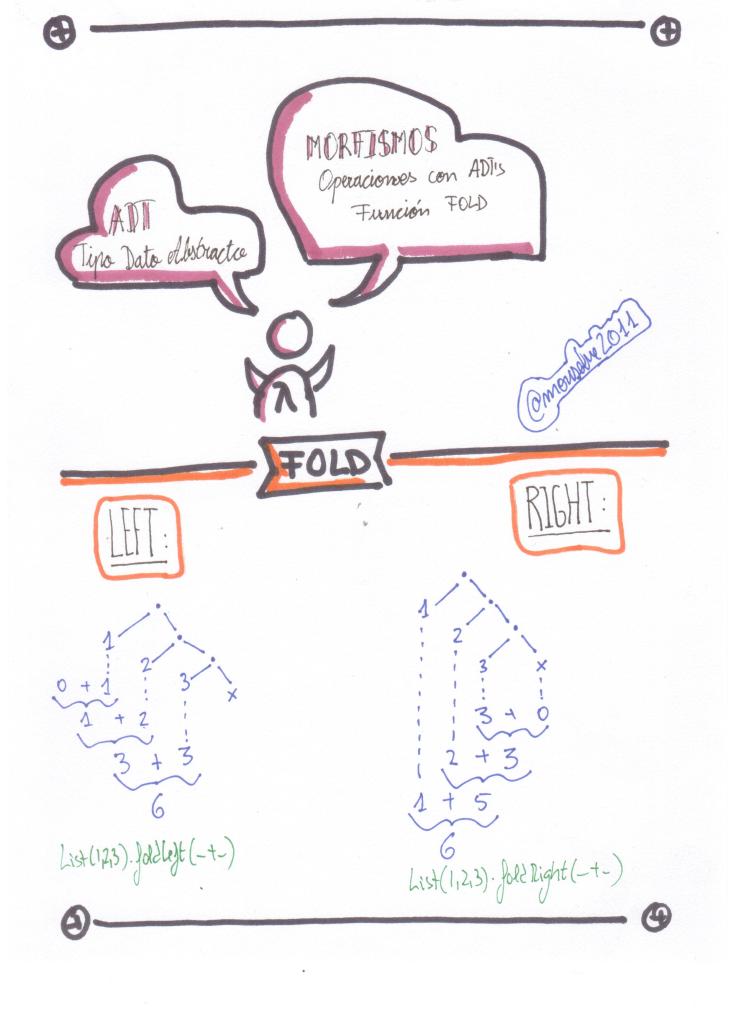 MORFISMOS
Operaciones con ADT's
Función FOLD
ADT
Tipo Dato Abstracto
λ
FOLD
LEFT:
RIGHT:
1
2
3
x
0 + 1
1 + 2
3 + 3
6
List(1,2,3).foldLeft(_+_)
1
2
3
x
3 + 0
2 + 3
1 + 5
6
List(1,2,3).foldRight(_+_)